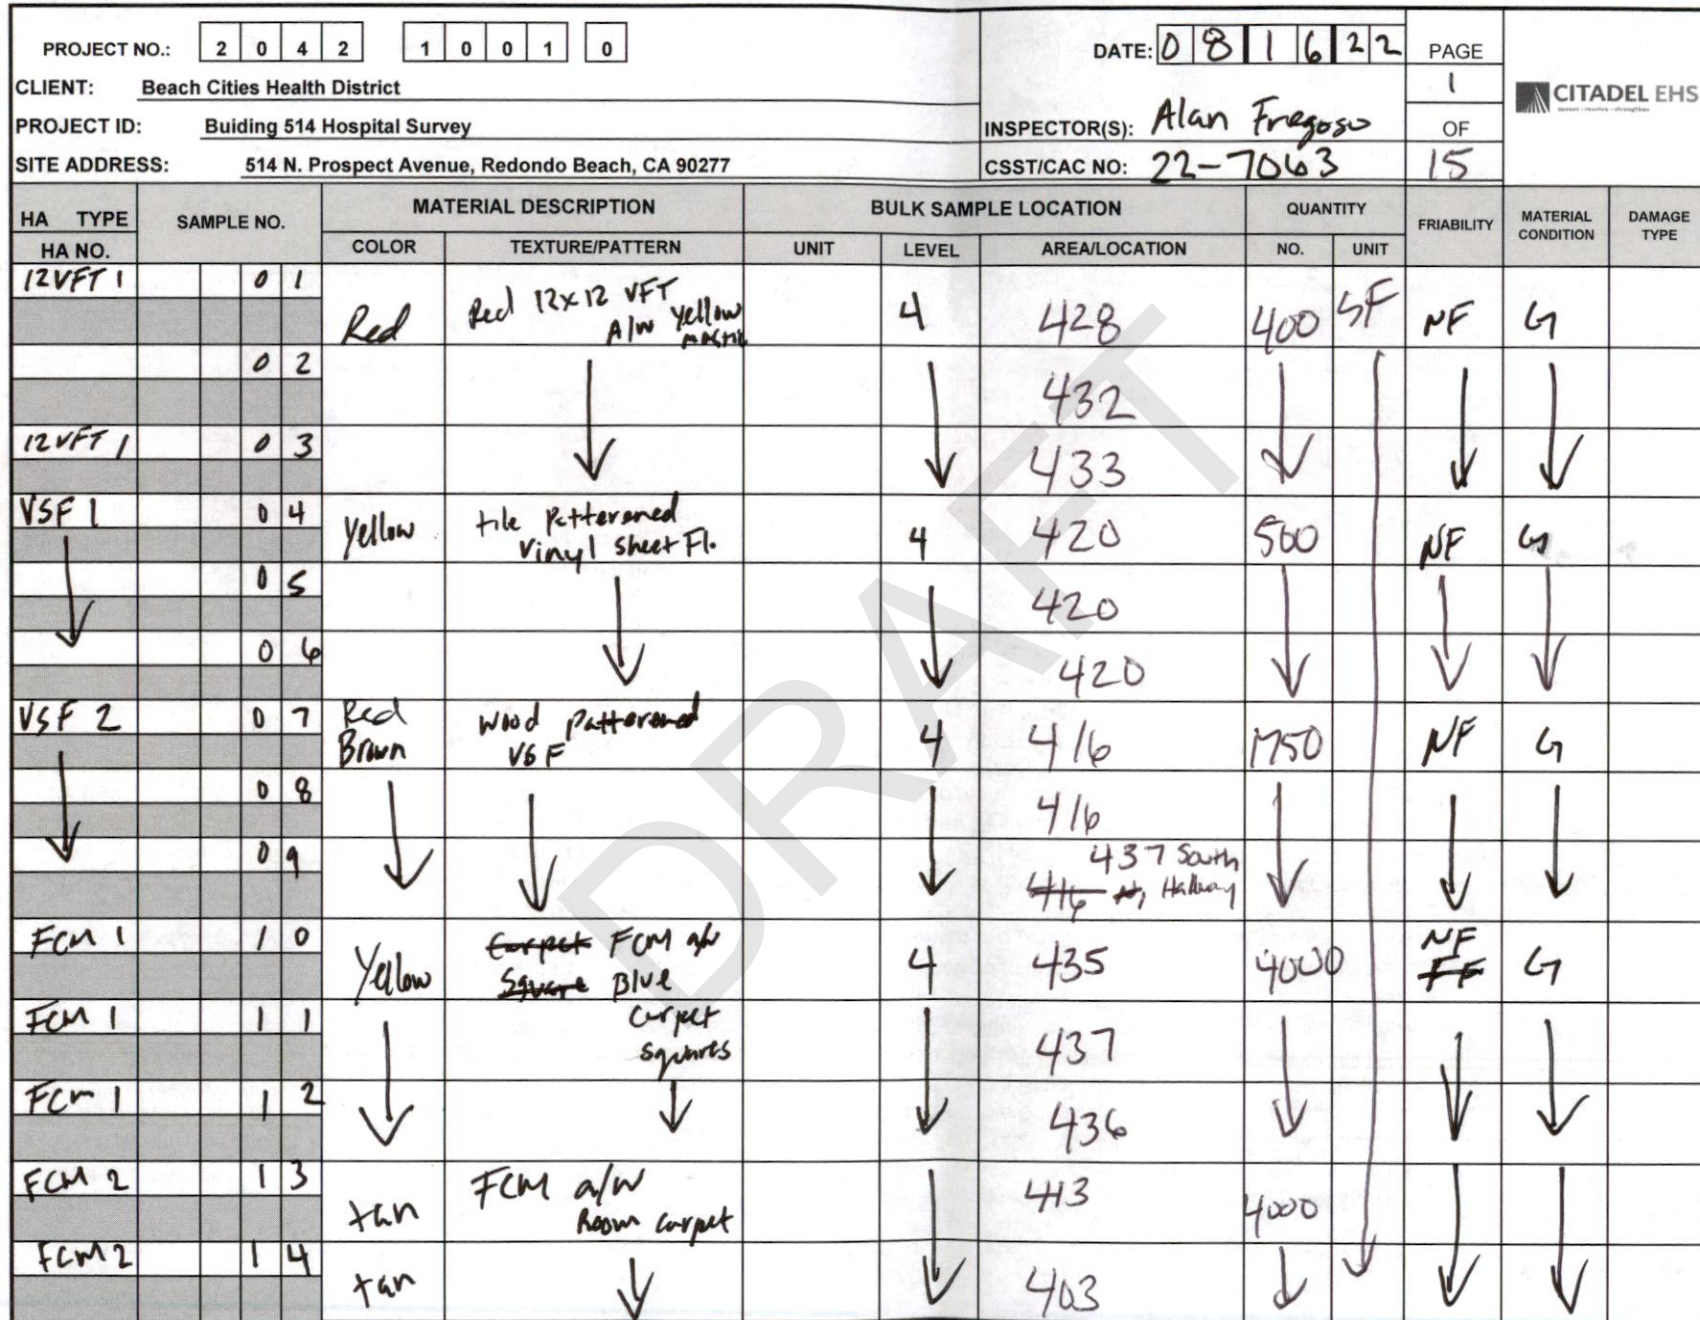 PROJECT NO.: 2 0 4 2 1 0 0 1 0
DATE: 0 8 1 6 2 2
PAGE
1
OF
15
CLIENT: Beach Cities Health District
PROJECT ID: Buiding 514 Hospital Survey
INSPECTOR(S): Alan Fregoso
SITE ADDRESS: 514 N. Prospect Avenue, Redondo Beach, CA 90277
CSST/CAC NO: 22-7063
CITADEL EHS
HA TYPE
HA NO.
SAMPLE NO.
MATERIAL DESCRIPTION
COLOR TEXTURE/PATTERN
BULK SAMPLE LOCATION
UNIT LEVEL AREA/LOCATION
QUANTITY
NO. UNIT
FRIABILITY
MATERIAL
CONDITION
DAMAGE
TYPE
12VFT 1 0 1 Red Red 12x12 VFT
A/W Yellow
mastic
4 428 400 SF NF G
0 2 432
12VFT 1 0 3 433
VSF 1 0 4 Yellow tile patterened
vinyl sheet Fl.
4 420 500 NF G
0 5 420
0 6 420
VSF 2 0 7 Red
Brown
Wood patterened
VSF
4 416 1750 NF G
0 8 416
0 9 437 South
416 Hallway
FCM 1 1 0 Yellow Carpet FCM a/w
Square Blue
carpet
squares
4 435 4000 NF
G
FCM 1 1 1 437
FCM 1 1 2 436
FCM 2 1 3 tan FCM a/w
Room carpet
413 4000
FCM 2 1 4 tan 403
DRAFT